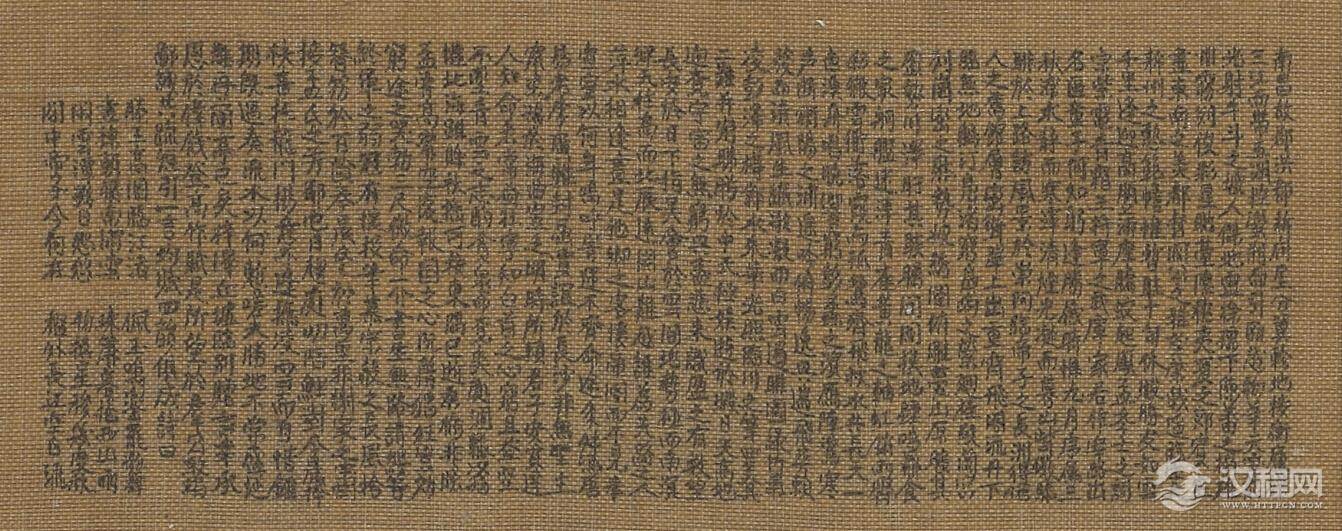 南昌故郡洪都新府星分翼軫地接衡廬襟
三江而帶五湖控蠻荊而引甌越物華天寶龍
光射牛斗之墟人傑地靈徐孺下陳蕃之榻雄
州霧列俊彩星馳臺隍枕夷夏之交賓主
盡東南之美都督閻公之雅望棨戟遙臨宇文
新州之懿範襜帷暫駐十旬休暇勝友如雲
千里逢迎高朋滿座騰蛟起鳳孟學士之詞
宗紫電青霜王將軍之武庫家君作宰路出
名區童子何知躬逢勝餞時惟九月序屬三
秋潦水盡而寒潭清煙光凝而暮山紫儼驂
騑於上路訪風景於崇阿臨帝子之長洲得仙
人之舊館層巒聳翠上出重霄飛閣流丹下
臨無地鶴汀鳧渚窮島嶼之縈迴桂殿蘭宮
列岡巒之體勢披繡闥俯雕甍山原曠其
盈視川澤盱其駭矚閭閻撲地鐘鳴鼎食
之家舸艦迷津青雀黃龍之舳虹銷雨霽
彩徹雲衢落霞與孤鶩齊飛秋水共長天一
色漁舟唱晚響窮彭蠡之濱雁陣驚寒
聲斷衡陽之浦遙吟俯暢逸興遄飛爽籟
發而清風生纖歌凝而白雲遏睢園綠竹氣
凌彭澤之樽鄴水朱華光照臨川之筆四美具
二難并窮睇眄於中天極娛遊於暇日天高地
迥覺宇宙之無窮興盡悲來識盈虛之有數望
長安於日下指吳會於雲間地勢極而南溟
深天柱高而北辰遠關山難越誰悲失路之人
萍水相逢盡是他鄉之客懷帝閽而不見奉
宣室以何年嗚呼時運不齊命途多舛馮唐
易老李廣難封屈賈誼於長沙非無聖主
竄梁鴻於海曲豈乏明時所賴君子安貧達
人知命老當益壯寧知白首之心窮且益堅
不墜青雲之志酌貪泉而覺爽處涸轍以猶
懽北海雖賒扶搖可接東隅已逝桑榆非晚
孟嘗高潔空懷報國之心阮籍猖狂豈效
窮途之哭勃三尺微命一介書生無路請纓等
終軍之弱冠有懷投筆慕宗愨之長風捨
簪笏於百齡奉晨昏於萬里非謝家之寶樹
接孟氏之芳鄰他日趨庭叨陪鯉對今晨捧
袂喜托龍門楊意不逢撫凌雲而自惜鍾
期既遇奏流水以何慚嗟夫勝地不常盛筵
難再蘭亭已矣梓澤丘墟臨別贈言幸承
恩於偉餞登高作賦是所望於群公敢竭
鄙誠恭疏短引一言均賦四韻俱成詩曰
滕王高閣臨江渚 佩玉鳴鸞罷歌舞
畫棟朝飛南浦雲 珠簾暮捲西山雨
閑雲潭影日悠悠 物換星移幾度秋
閣中帝子今何在 檻外長江空自流
汉程网
WWW.HTTPCN.COM